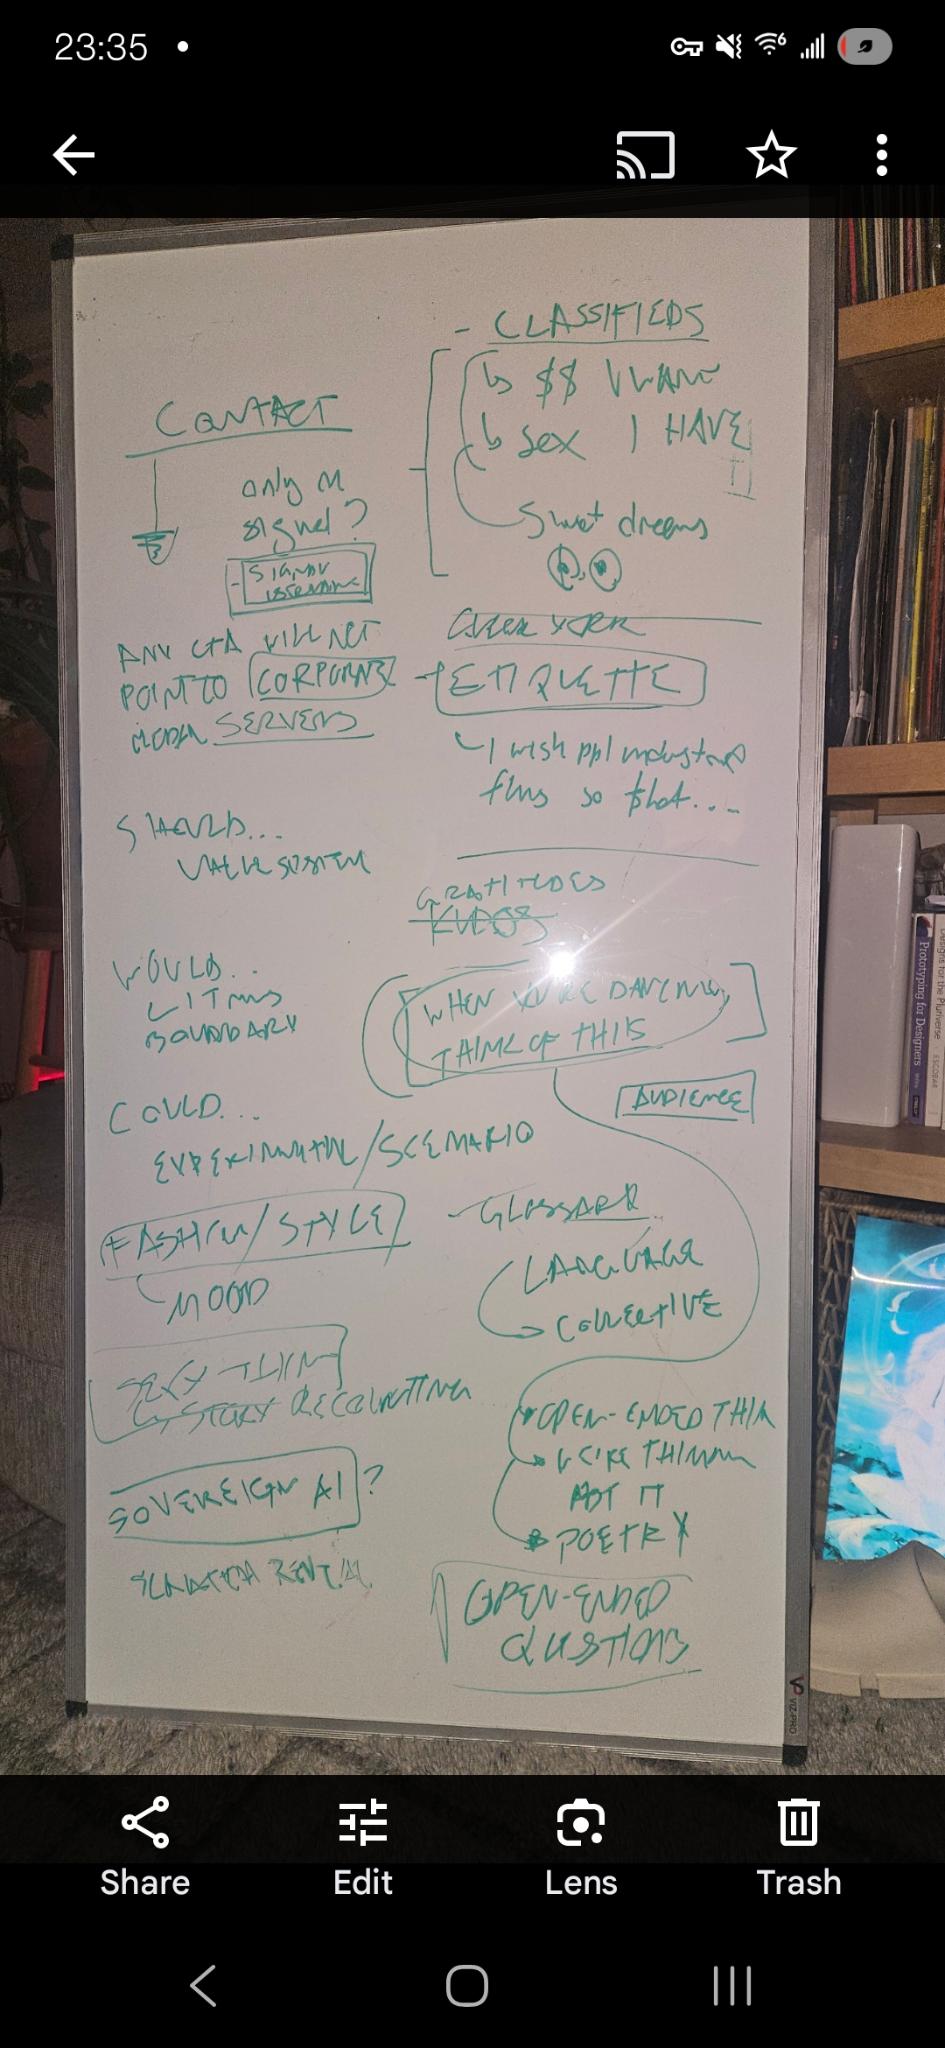 23:35
CONTACT
only on
signal?
ANY CTA WILL NOT
POINT TO CORPORATE
MEDIA SERVERS
SHOULD...
VALUE SYSTEM
WOULD...
LITMUS
BOUNDARY
COULD...
EXPERIMENTAL/SCENARIO
FASHION/STYLE
MOOD
SEXY TIMM
STORY RECOUNTING
SOVEREIGN AI?
RENTAL
- CLASSIFIEDS
$$ I WANT
SEX I HAVE
Sweet dreams
ETIQUETTE
I wish ppl understood
this so that...
GRATITUDES
KUDOS
WHEN YOU'RE DANCING,
THINK OF THIS
AUDIENCE
- GLOSSARY
LANGUAGE
COLLECTIVE
OPEN-ENDED THINK
ABT IT
POETRY
OPEN-ENDED
QUESTIONS
Prototyping for Designers
Designs for the Pluriverse
ESCOBAR
VIZ-PRO
Share
Edit
Lens
Trash